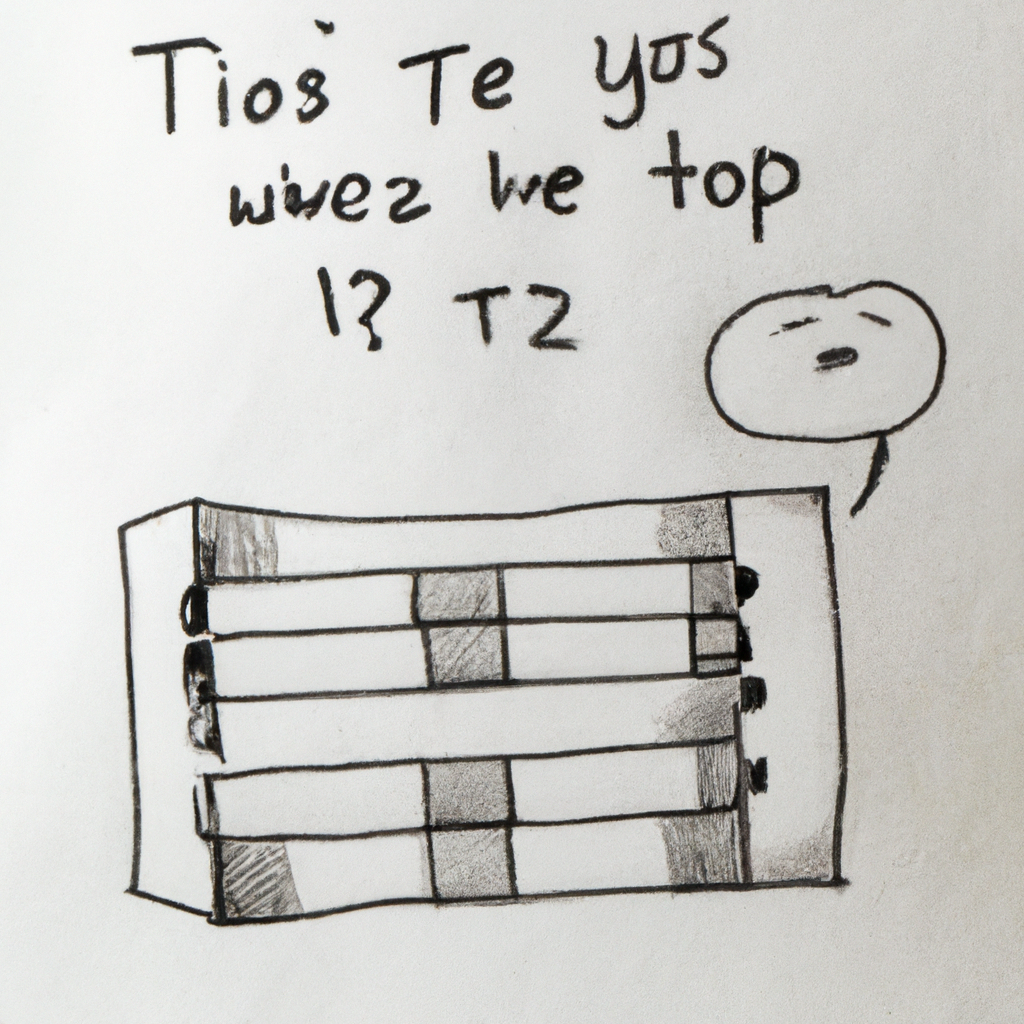 Tios Te yos
wivez we top
1? TZ